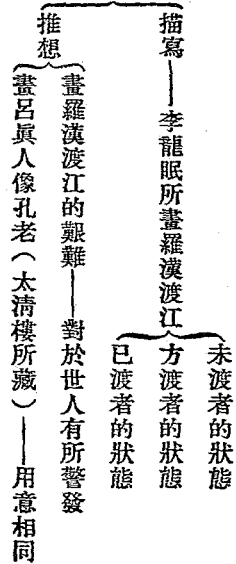 描寫——李龍眠所畫羅漢渡江
未渡者的狀態
方渡者的狀態
已渡者的狀態
推想
畫羅漢渡江的艱難——對於世人有所警發
畫呂眞人像孔老(太淸樓所藏)——用意相同